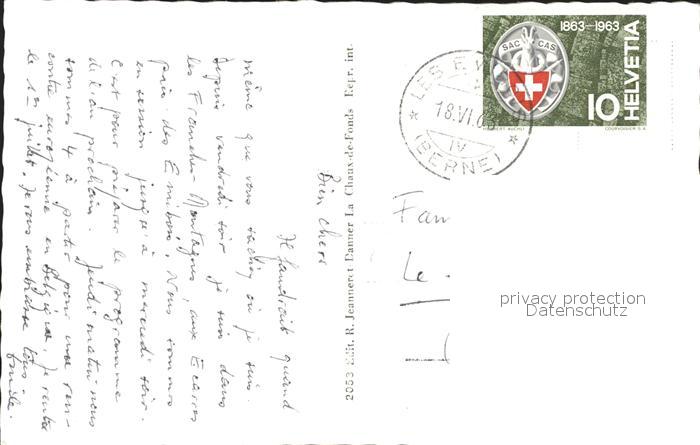 Bien chers
Il faudrait quand
même que vous sachiez où je suis.
Depuis vendredi soir je suis dans
les Franches-Montagnes, aux Ecarres
près des Emibois. Nous sommes
en session jusqu'à mercredi soir.
C'est pour préparer le programme
de l'an prochain. Jeudi matin nous
sommes 4 à partir pour une ren-
contre européenne en Belgique. Je rentre
le 1er juillet. Je vous embrasse tous
Emile.
2053 Edit. R. Jeanneret Danner La Chaux-de-Fonds Repr. int.
1863-1963
SAC CAS
HELVETIA
10
HERBERT AUCHLI COURVOISIER S.A.
LES
18.VI.63
IV
(BERNE)
Fam
Le
privacy protection
Datenschutz